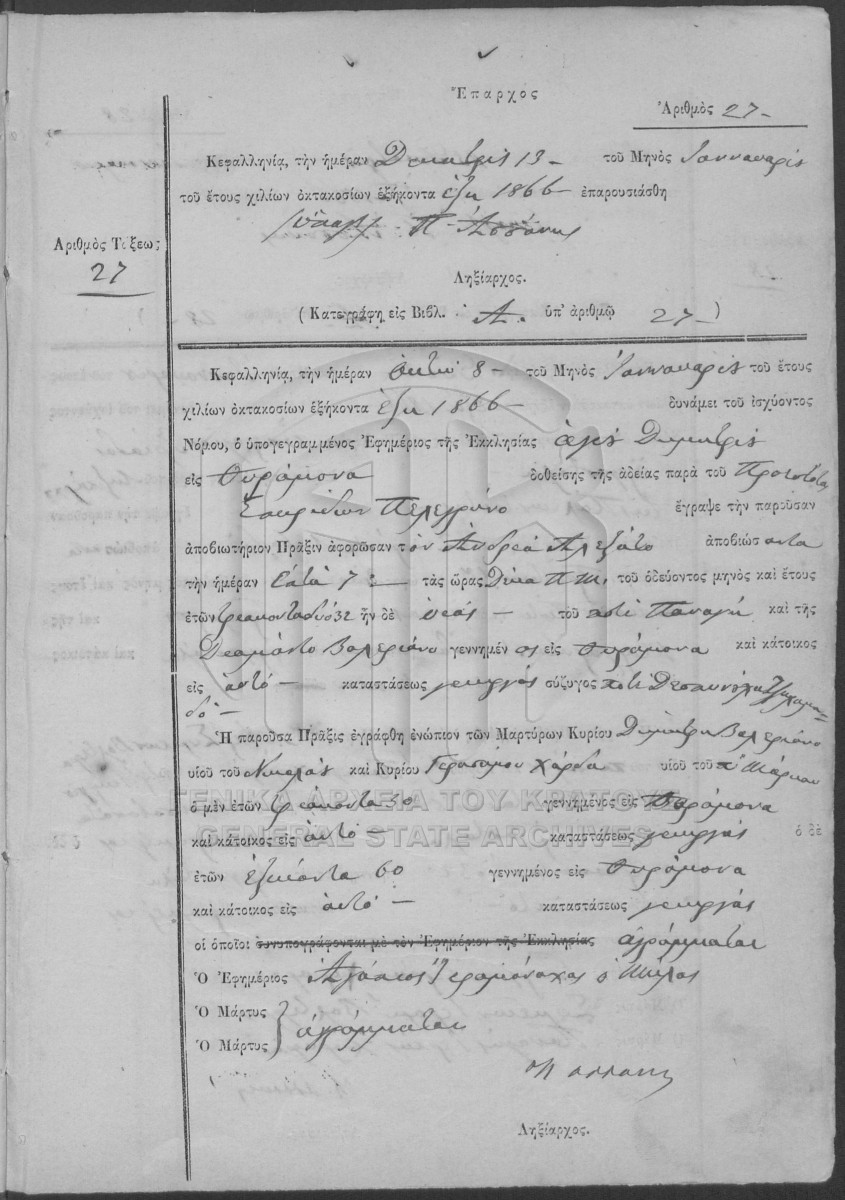 Ἔπαρχος
Ἀριθμὸς 27
Κεφαλληνίᾳ, τὴν ἡμέραν Δεκατρεῖς 13 τοῦ Μηνὸς Ἰαννουαρίου
τοῦ ἔτους χιλίων ὀκτακοσίων ἑξήκοντα ἕξη 1866 ἐπαρουσιάσθη
Π.
Ἀριθμὸς Τάξεως
27
Ληξίαρχος.
(Κατεγράφη εἰς Βιβλ. Α. ὑπ' ἀριθμῷ 27)
Κεφαλληνίᾳ, τὴν ἡμέραν ὀκτώ 8 τοῦ Μηνὸς Ἰαννουαρίου τοῦ ἔτους
χιλίων ὀκτακοσίων ἑξήκοντα ἕξη 1866 δυνάμει τοῦ ἰσχύοντος
Νόμου, ὁ ὑπογεγραμμένος Ἐφημέριος τῆς Ἐκκλησίας ἁγίου Δημητρίου
εἰς Θηράμονα δοθείσης τῆς ἀδείας παρὰ τοῦ
Πελεγρίνο ἔγραψε τὴν παροῦσαν
ἀποβιωτήριον Πρᾶξιν ἀφορῶσαν τὸν Ἀνδρέα Αλεξάτο ἀποβιώσαντα
τὴν ἡμέραν Ἑπτά 7 τὰς ὥρας Δέκα Π.Μ. τοῦ ὁδεύοντος μηνὸς καὶ ἔτους
ἐτῶν τριάκονταδυό 32 ἦν δὲ υἱός τοῦ ποτέ Παναγή καὶ τῆς
Διαμάντο Βαλεριάνο γεννημένος εἰς Θηράμονα καὶ κάτοικος
εἰς αὐτό καταστάσεως γεωργός σύζυγος
Ἡ παροῦσα Πρᾶξις ἐγράφθη ἐνώπιον τῶν Μαρτύρων Κυρίου Δημήτρη Βαλεριάνο
υἱοῦ τοῦ Νικολάου καὶ Κυρίου Γερασίμου Χάρδα υἱοῦ τοῦ π. Μάρκου
ὁ μὲν ἐτῶν τριάκοντα 30 γεννημένος εἰς Θηράμονα
καὶ κάτοικος εἰς αὐτό καταστάσεως γεωργός ὁ δὲ
ἐτῶν ἑξήκοντα 60 γεννημένος εἰς Θηράμονα
καὶ κάτοικος εἰς αὐτό καταστάσεως γεωργός
οἱ ὁποῖοι συνυπογράφονται μὲ τὸν Ἐφημέριον τῆς Ἐκκλησίας ἀγράμματοι
Ὁ Ἐφημέριος Ἱερομόναχος ὁ
Ὁ Μάρτυς
Ὁ Μάρτυς ἀγράμματοι
Ληξίαρχος.
ΓΕΝΙΚΑ ΑΡΧΕΙΑ ΤΟΥ ΚΡΑΤΟΥΣ
GENERAL STATE ARCHIVES